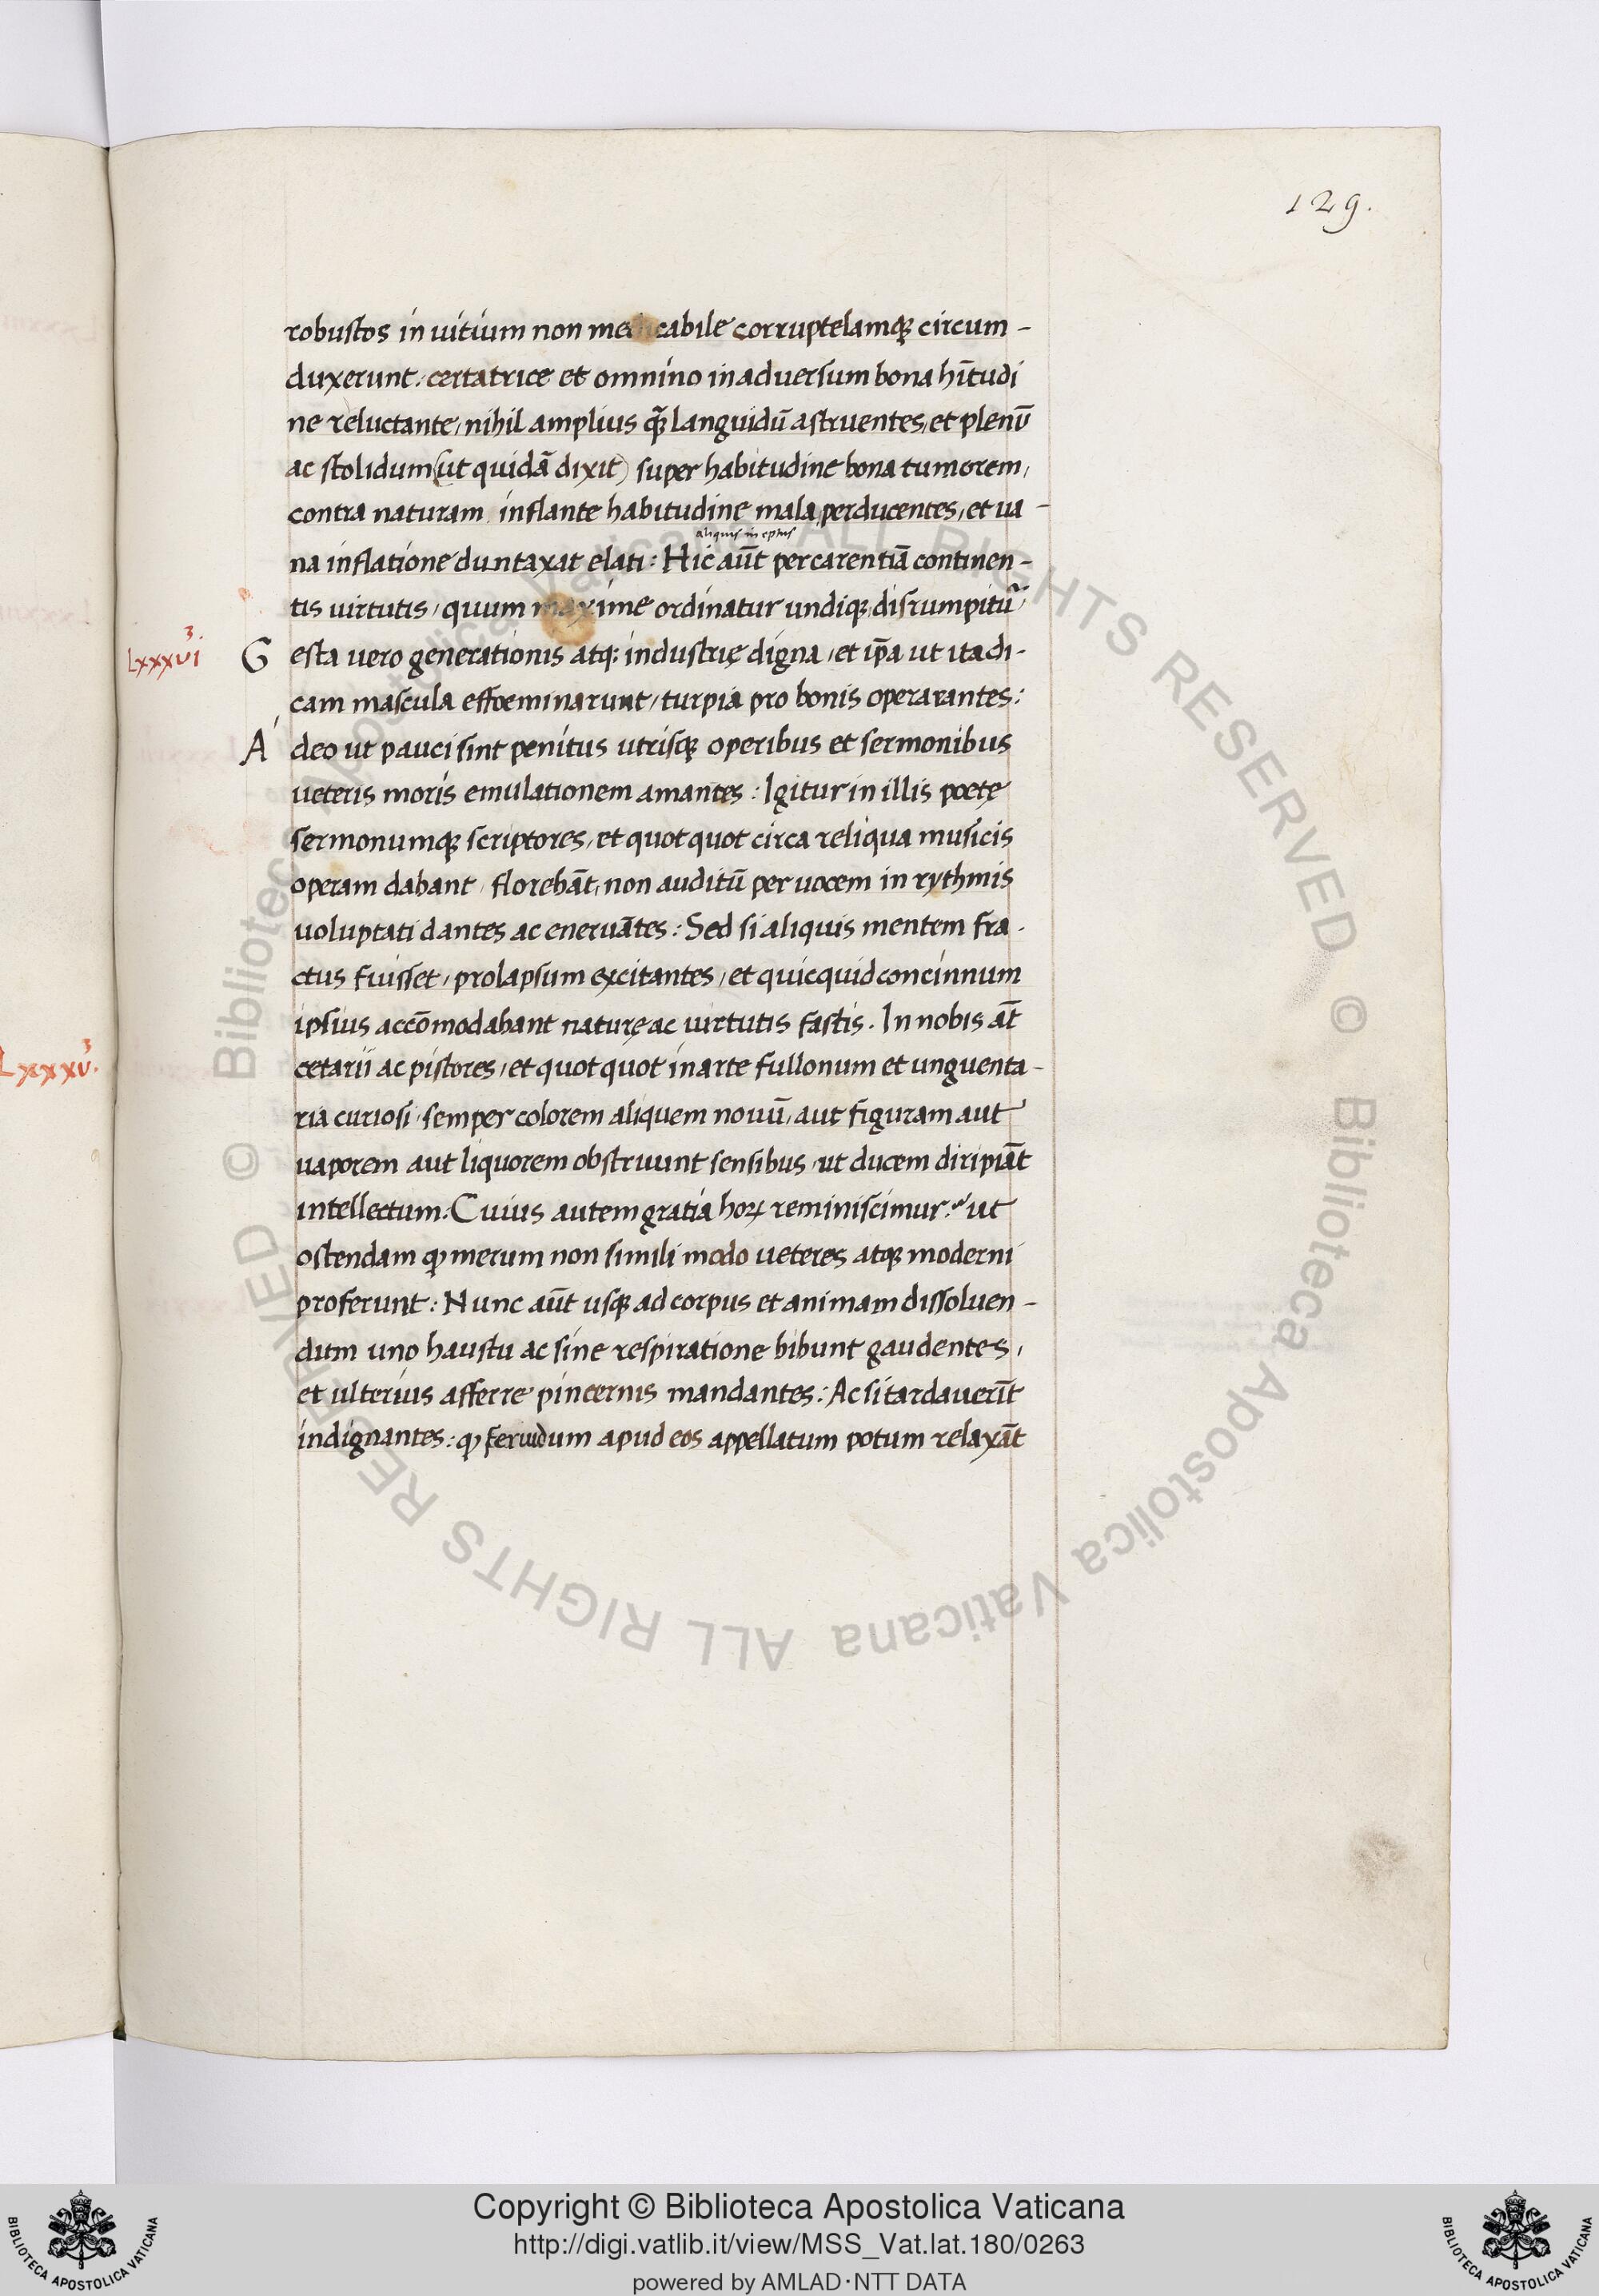 129.
robustos in uitium non medicabile corruptelamqꝫ circum-
duxerunt, certatrice et omnino in aduersum bona hītudi
ne reluctante, nihil amplius quā languidū astruentes, et plenū
ac stolidum (ut quidā dixit) super habitudine bona tumorem,
contra naturam inflante habitudine mala perducentes, et ua-
aliquis ineptus
na inflatione duntaxat elati: Hic aūt per carentiā continen-
tis uirtutis, quum maxime ordinatur undiqꝫ disrumpitū
Lxxxvi
Gesta uero generationis atq: industrię digna, et ip̄a ut ita di-
cam mascula effoeminarunt, turpia pro bonis operarantes:
Adeo ut pauci sint penitus utrisqꝫ operibus et sermonibus
ueteris moris emulationem amantes: Igitur in illis poetę
sermonumqꝫ scriptores, et quotquot circa reliqua musicis
operam dabant, florebāt, non auditū per uocem in rythmis
uoluptati dantes ac eneruātes: Sed si aliquis mentem fra-
ctus fuisset, prolapsum excitantes, et quicquid concinnum
ipsius accōmodabant naturę ac uirtutis fastis. In nobis aūt
Lxxxv.
cetarii ac pistores, et quotquot in arte fullonum et unguenta-
ria curiosi, semper colorem aliquem nouū, aut figuram aut
uaporem aut liquorem obstruunt sensibus, ut ducem diripiāt
intellectum. Cuius autem gratia horꝝ reminiscimur? ut
ostendam ꝙ merum non simili modo ueteres atqꝫ moderni
proferunt: Nunc aūt usqꝫ ad corpus et animam dissoluen-
dum uno haustu ac sine respiratione bibunt gaudentes,
et ulterius afferre pincernis mandantes: Ac si tardauerīt
indignantes: ꝙ feruidum apud eos appellatum potum relaxāt
© Biblioteca Apostolica Vaticana ALL RIGHTS RESERVED © Biblioteca Apostolica Vaticana ALL RIGHTS RESERVED
Copyright © Biblioteca Apostolica Vaticana
http://digi.vatlib.it/view/MSS_Vat.lat.180/0263
powered by AMLAD·NTT DATA
BIBLIOTECA APOSTOLICA VATICANA
BIBLIOTECA APOSTOLICA VATICANA